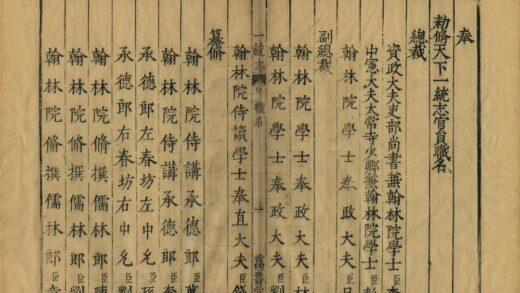 奉
勅脩天下一統志官員職名
總裁
資政大夫吏部尚書兼翰林院學士臣
中憲大夫太常寺少卿兼翰林院學士臣
翰林院學士奉政大夫臣
副總裁
翰林院學士奉政大夫臣林
翰林院學士奉政大夫臣劉
一統志 職名 一 萬壽堂
翰林院侍讀學士奉直大夫臣錢
纂脩
翰林院侍講承德郎臣萬
翰林院侍講承德郎臣李
承德郎左春坊左中允臣孫
承德郎右春坊右中允臣劉
翰林院脩撰儒林郎臣陳
翰林院脩撰儒林郎臣劉
翰林院脩撰儒林郎臣